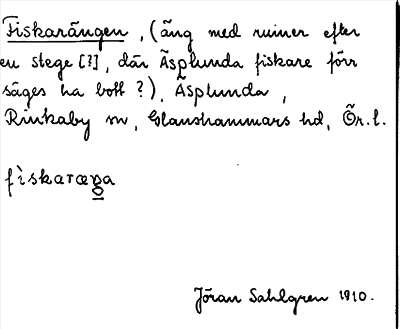 Fiskarängen, (äng med ruiner efter
en stege [?], där Äsplunda fiskare förr
säges ha bott?), Äsplunda,
Rinkaby sn, Glanshammars hd, Ör. l.
fìskaræŋa
Jöran Sahlgren 1910.